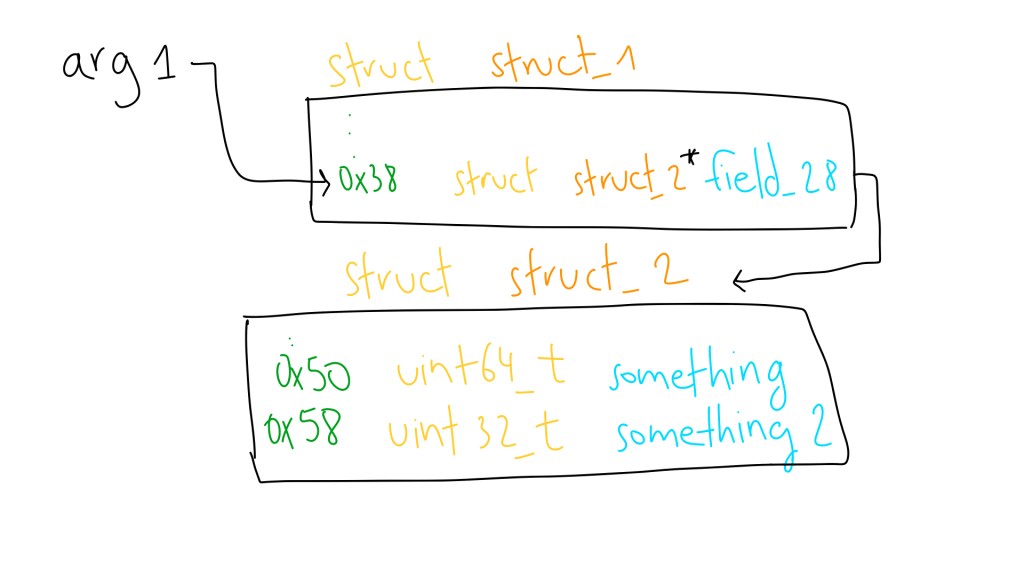 arg 1
struct struct_1
0x38 struct struct_2* field_28
struct struct_2
0x50 uint64_t something
0x58 uint 32_t something 2